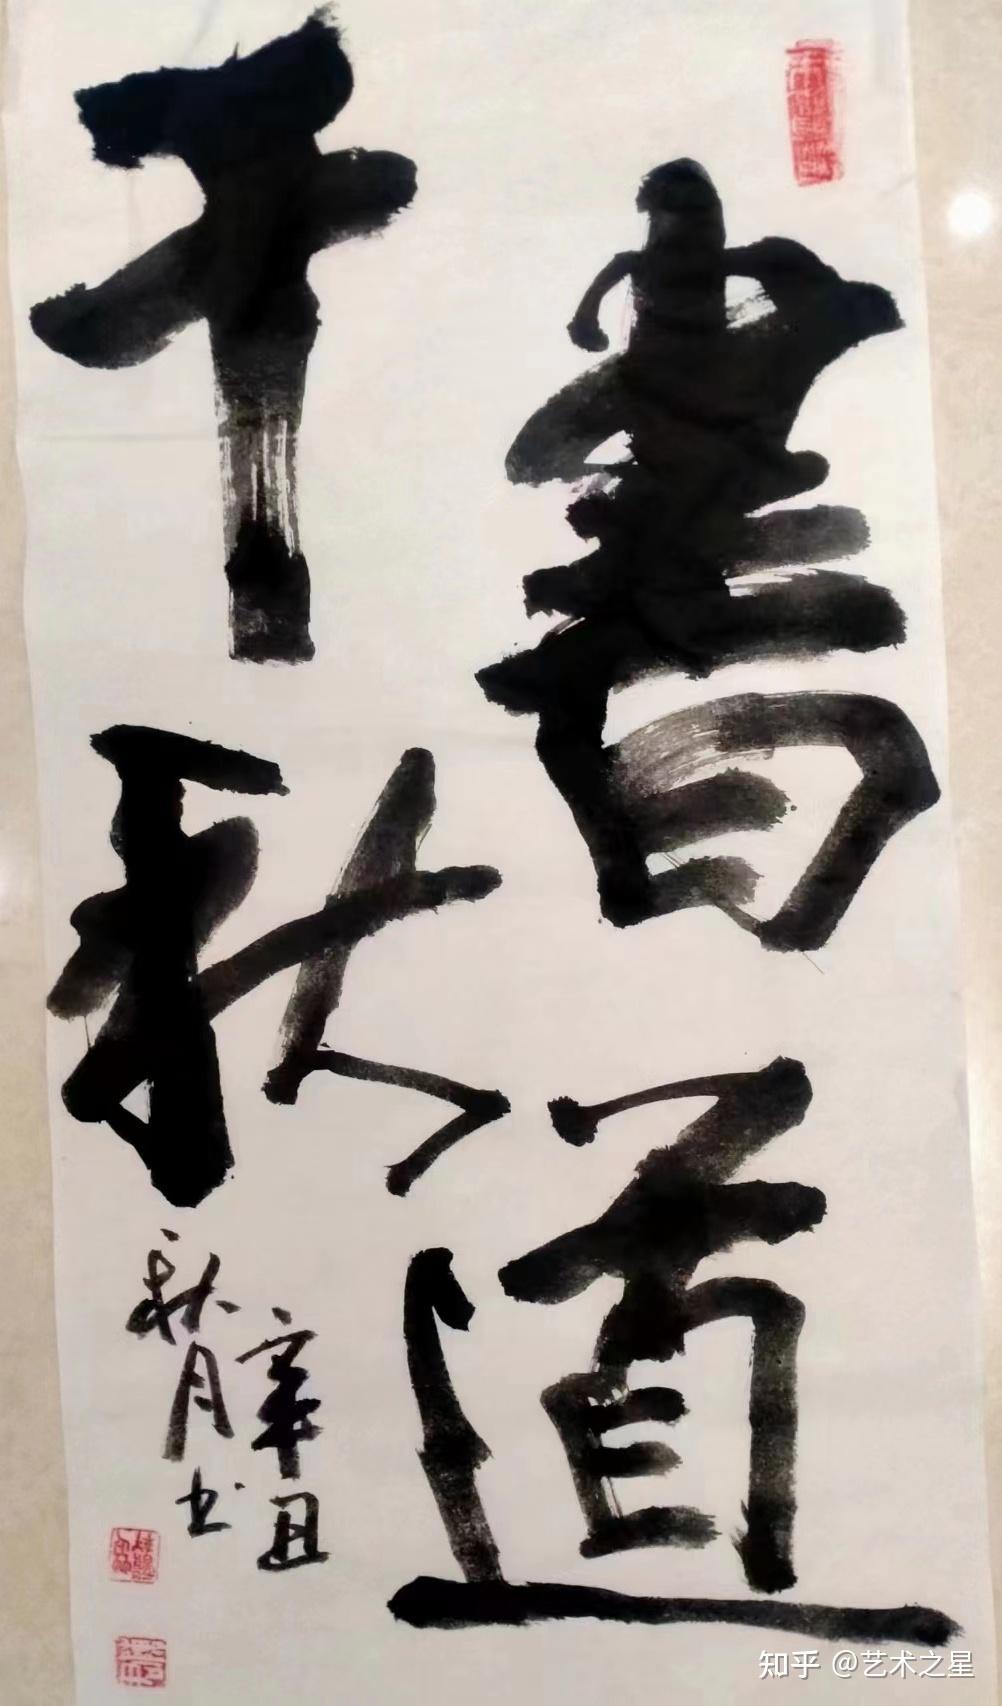 書道
千秋
辛丑
秋月书
知乎 @艺术之星